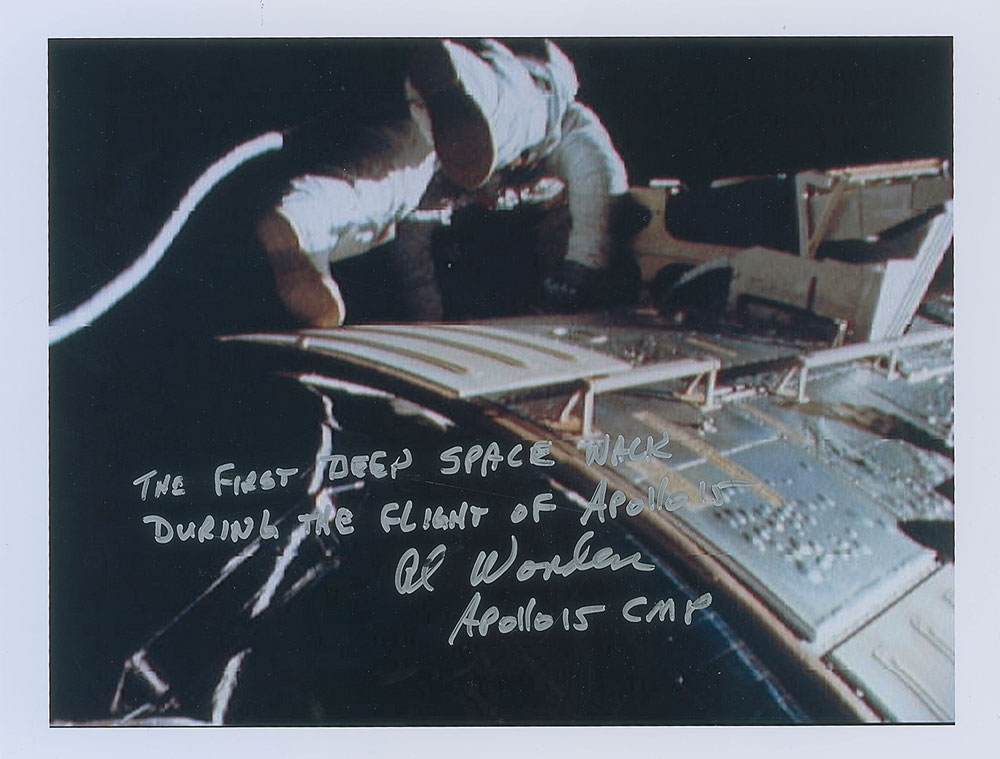 THE FIRST DEEP SPACE WALK
DURING THE FLIGHT OF APOLLO 15
Al Worden
APOLLO 15 CMP